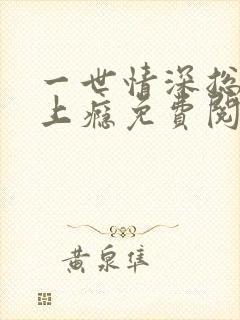 一世情深总
上瘾免费阅
黄泉隼